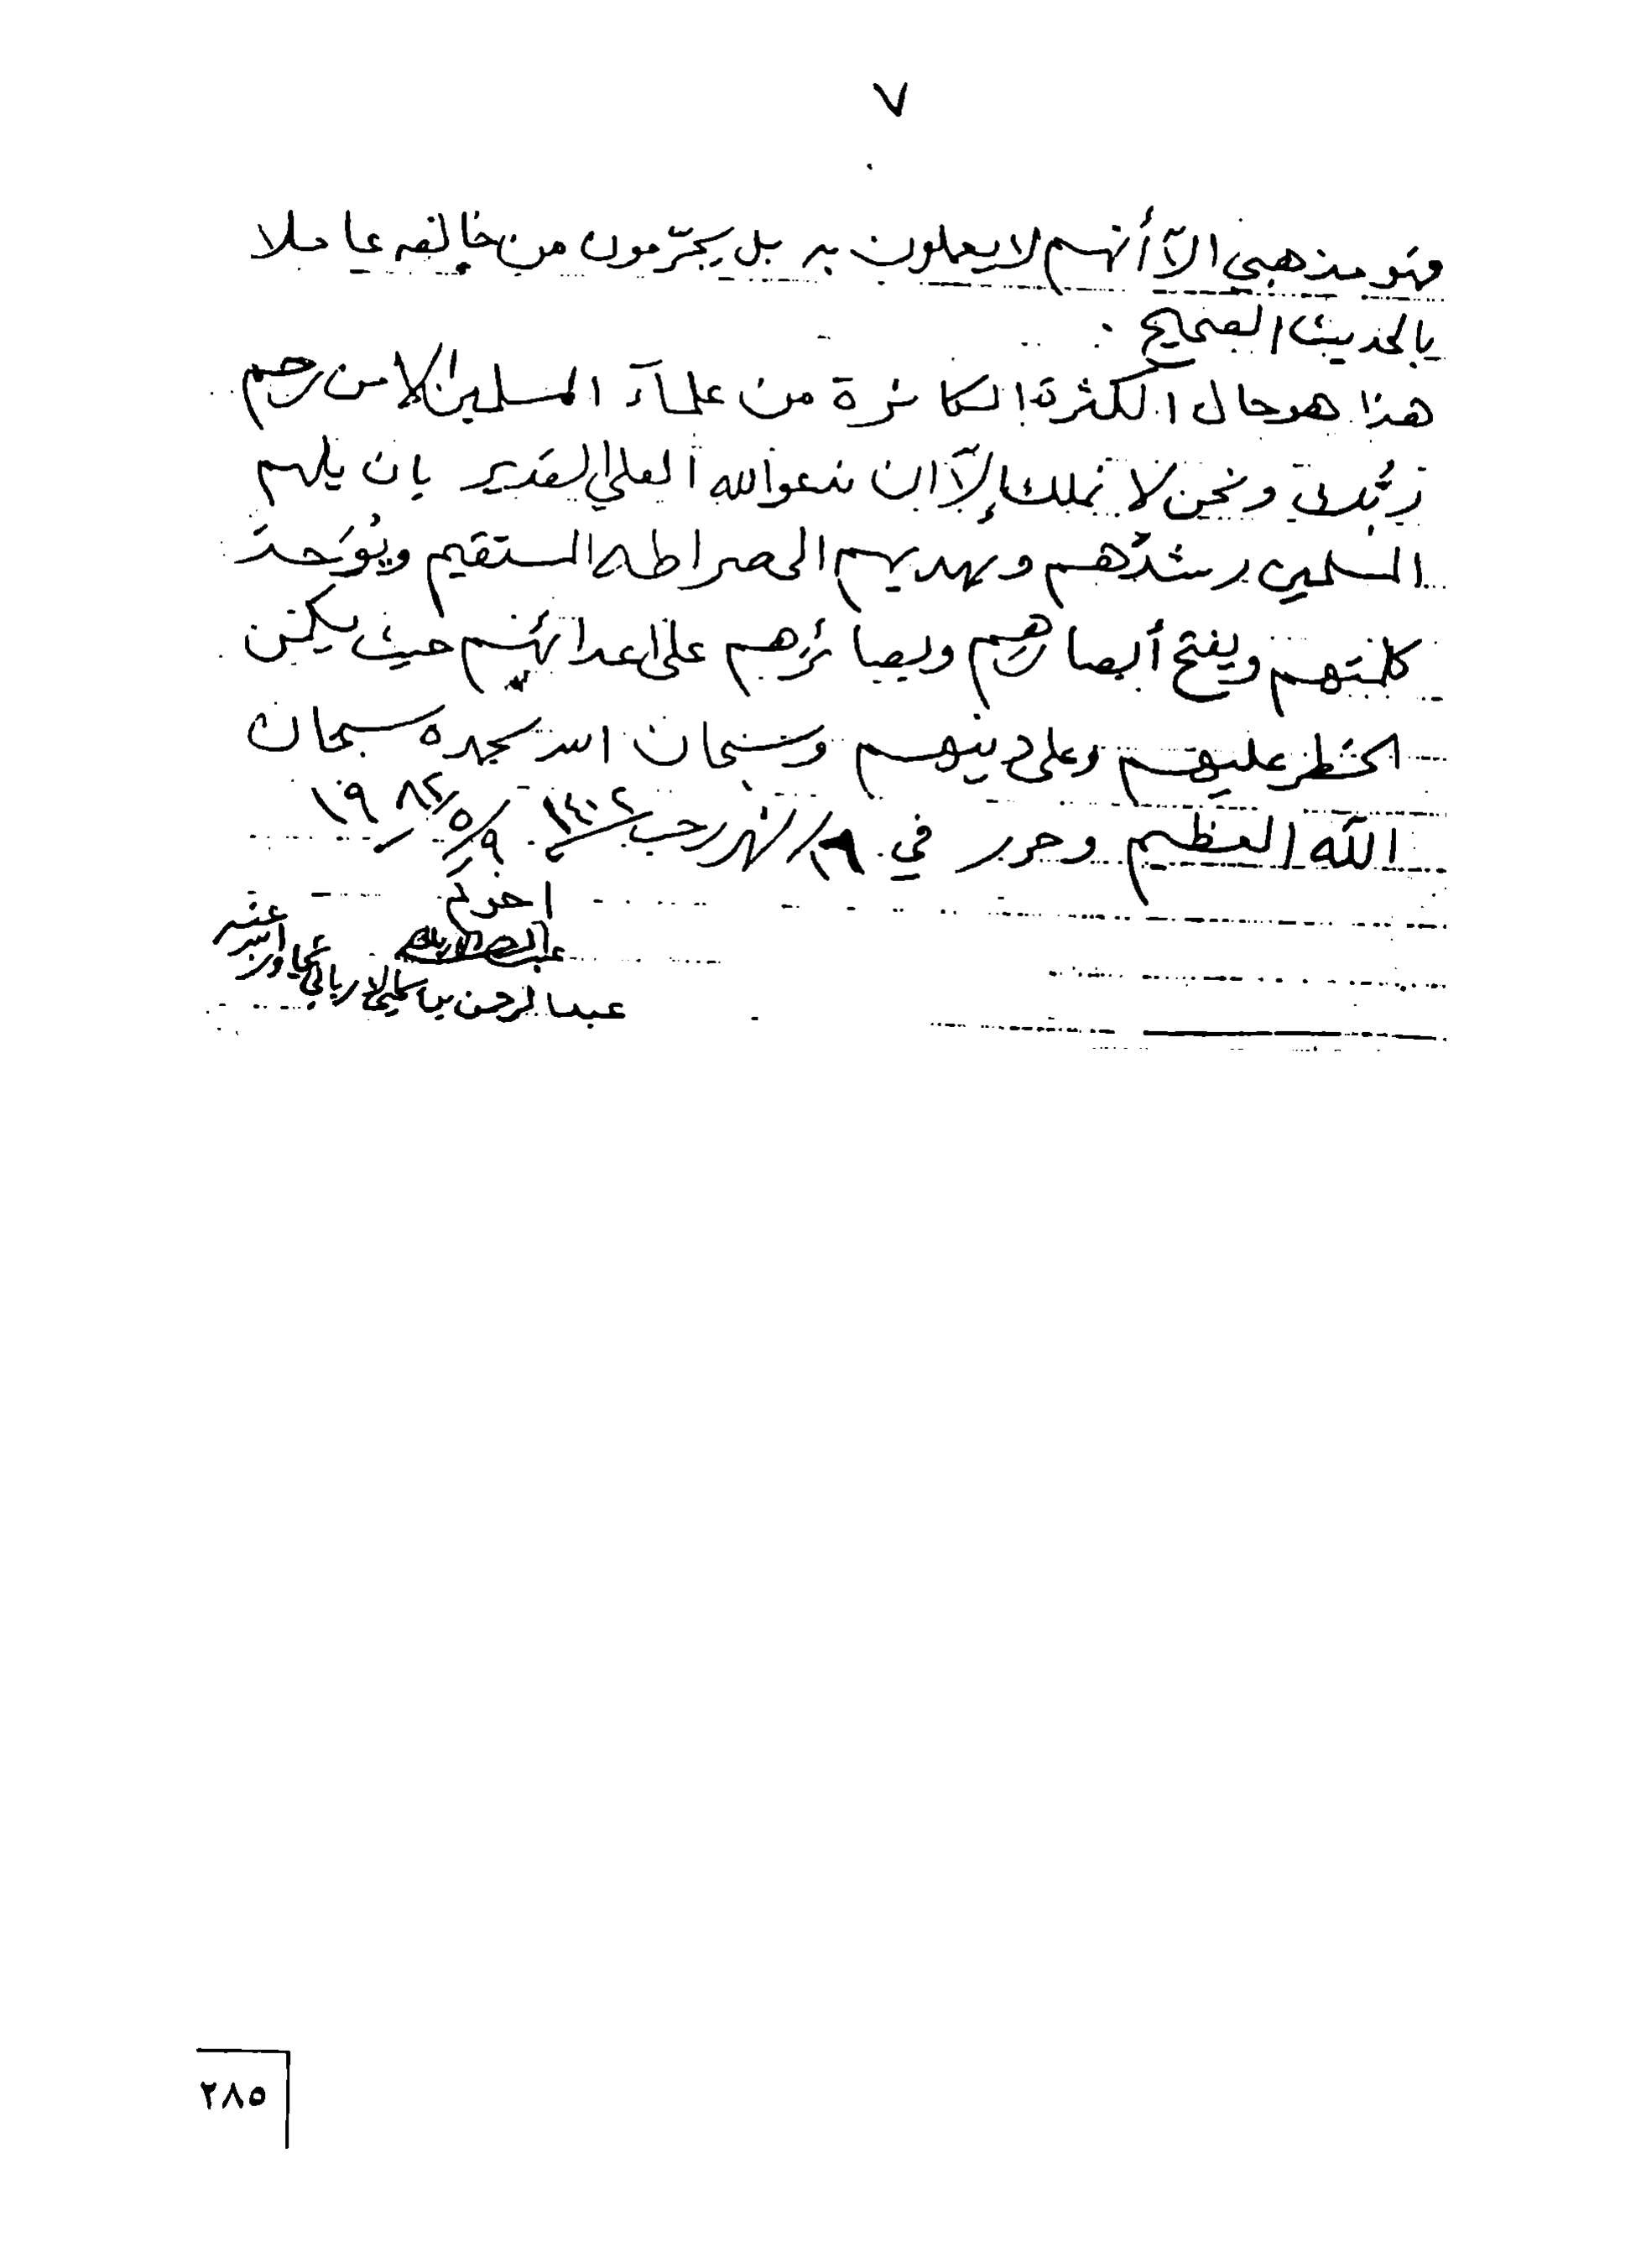 ٧
فهو مذهبي الّا أنهم لا يعملون به بل يجرّمون من خالفه عاملا
بالحديث الصحيح .
هذا هو حال الكثرة الكاثرة من علمآء المسلمين الا من رحم
ربُّك ونحن لا نملك إلّا ان ندعو الله العلي القدير بان يلهم
المسلمين رشدُهم ويهديهم الى صراطه المستقيم ويُوَحدَ
كلمتهم ويفتح أبصارهم وبصائرهم على اعدائهم حيث يكمن
الخطر عليهم وعلى دينهم وسبحان الله بحمده سبحان
الله العظيم وحرر في ١٩/ شهر رجب ١٤٠٢ ٩/٥/١٩٨٢
اخوكم
عبد الرحمن الالباني تجاوز الله عنه
٢٨٥